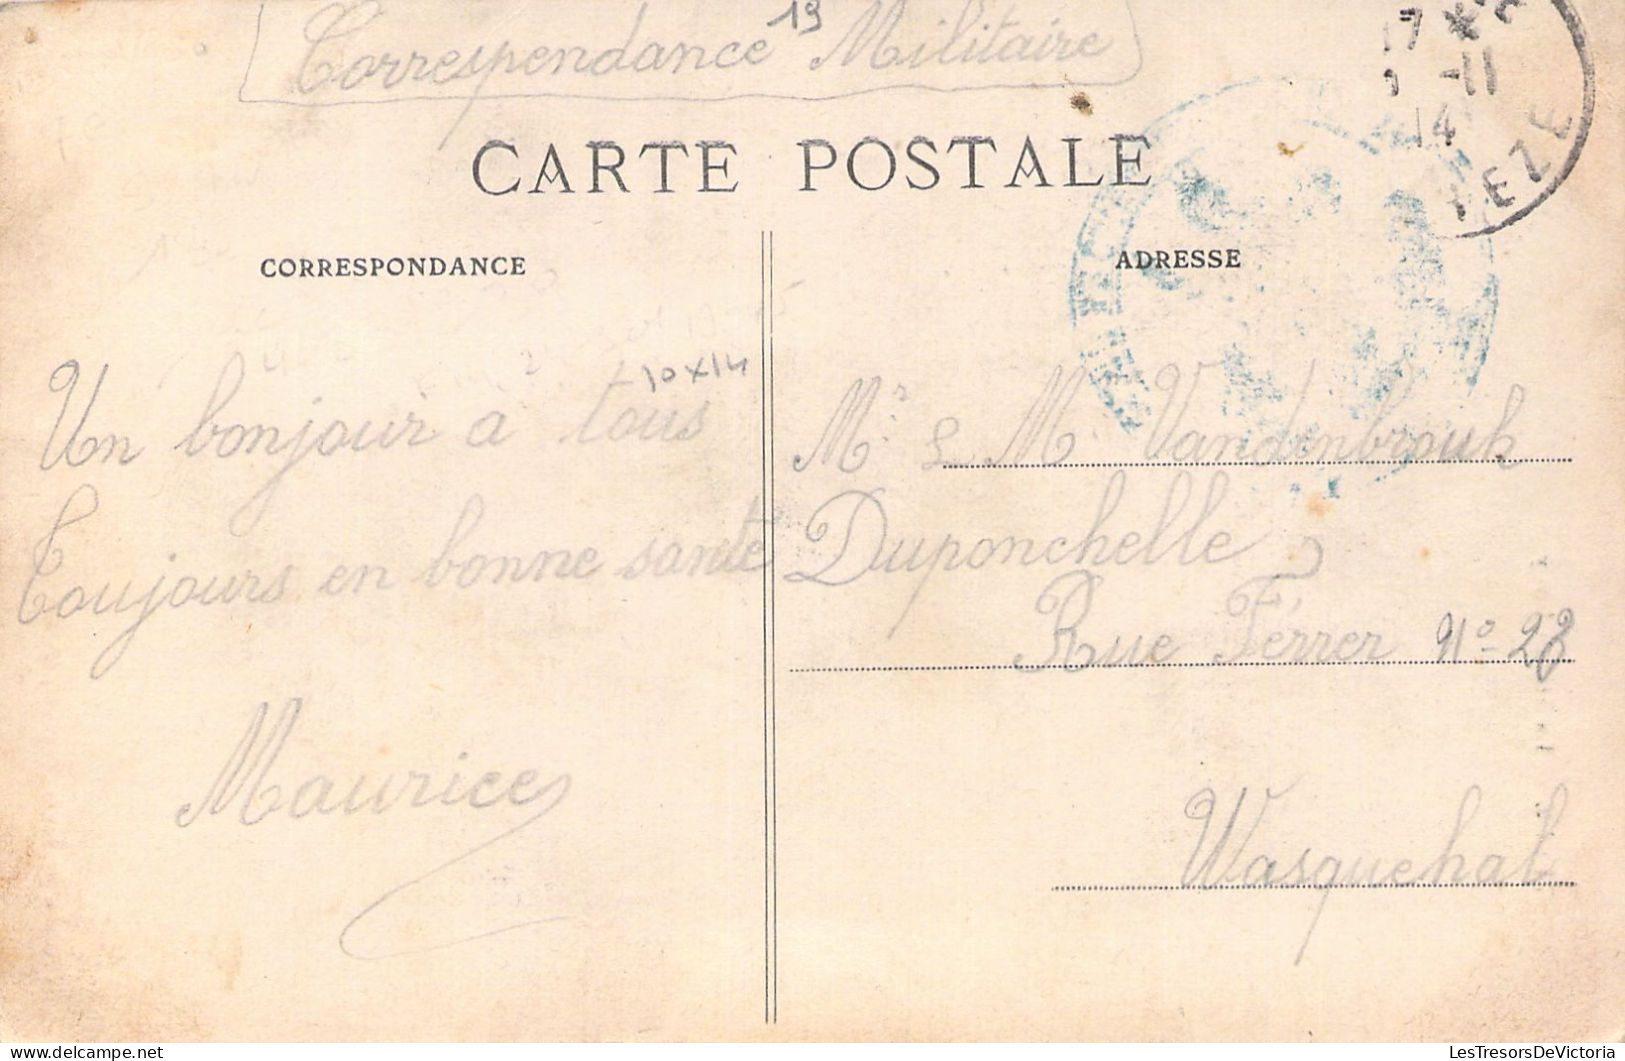 19
Correspendance Militaire
17 *
-11
14
EZE
CARTE POSTALE
CORRESPONDANCE
ADRESSE
10x14
Un bonjour a tous
Toujours en bonne santé
Maurice
Mr & M Vandenbrouk
Duponchelle
Rue Férrer No 28
Wasquehal
LesTresorsDeVictoria